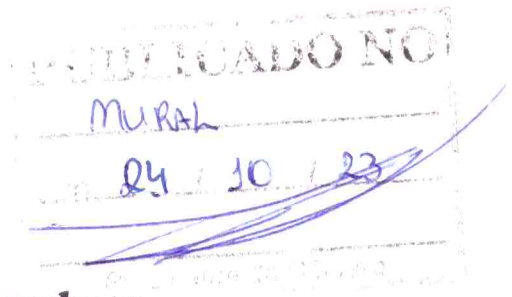 PUBLICADO NO
MURAL
24 / 10 / 23